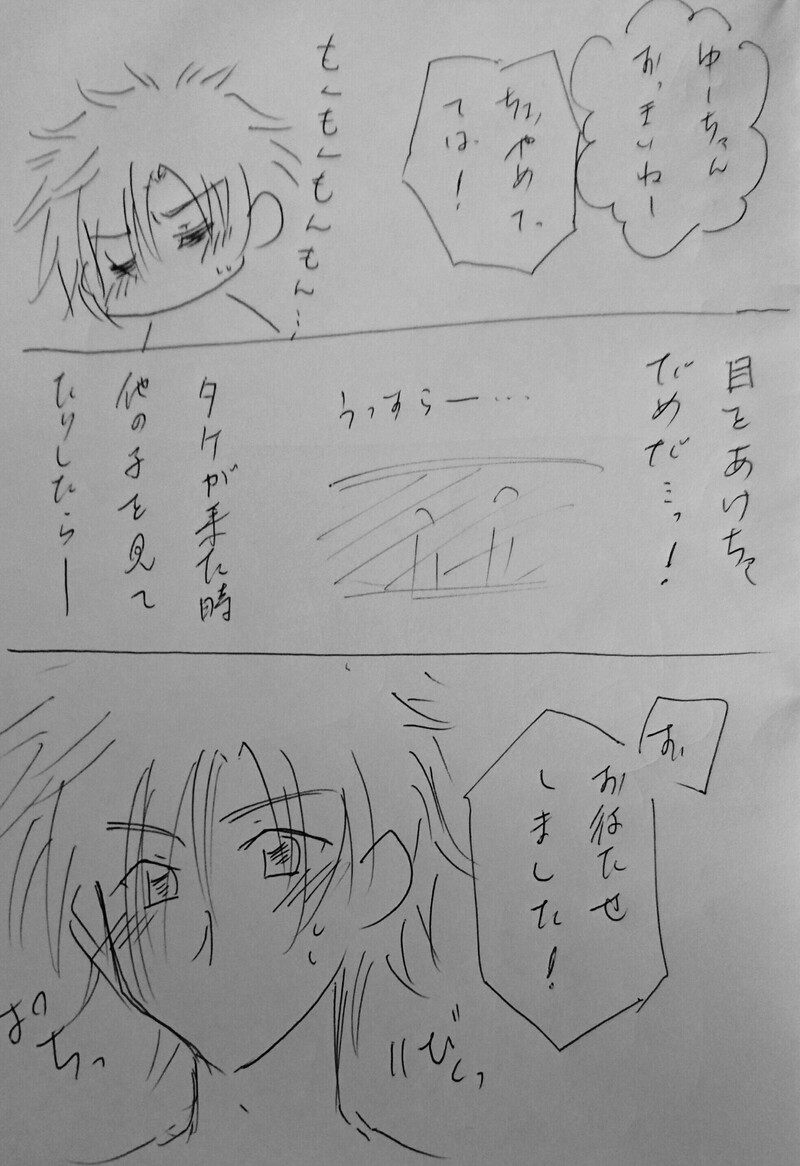 ゆーちゃん
おっきいねー
ちょ、やめて
てば!
もんもんもんもん…
目をあけちゃ
だめだ…っ!
うっすらー…
タケが来た時
他の子を見て
たりしたらー
お、
お待たせ
しました!
びくっ
ぱちっ